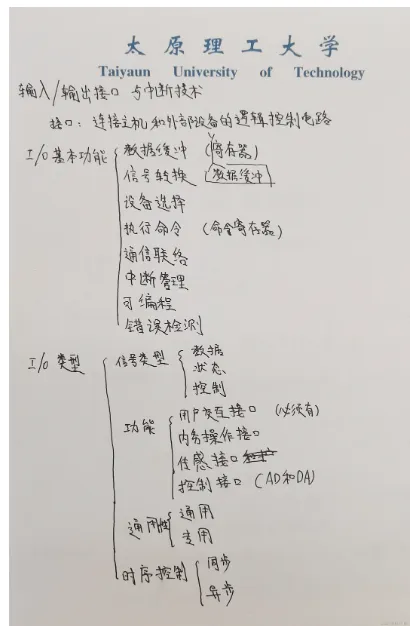 太原理工大学
Taiyaun University of Technology
输入/输出接口 与中断技术
接口：连接主机和外部设备的逻辑控制电路
I/O基本功能
数据缓冲 (寄存器)
信号转换 数据缓冲
设备选择
执行命令 (命令寄存器)
通信联络
中断管理
可编程
错误检测
I/O 类型
信号类型
数据
状态
控制
功能
用户交互接口 (必须有)
内务操作接口
传感接口
控制接口 (AD和DA)
通用性
通用
专用
时序控制
同步
异步